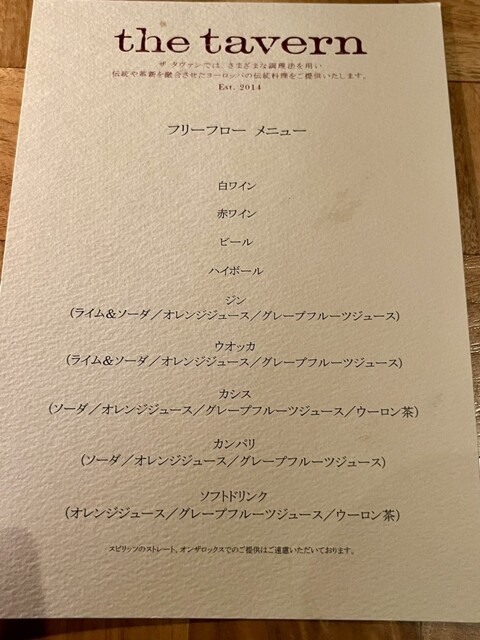 the tavern
ザ タヴァンでは、さまざまな調理法を用い
伝統や革新を融合させたヨーロッパの伝統料理をご提供いたします。
Est. 2014
フリーフロー メニュー
白ワイン
赤ワイン
ビール
ハイボール
ジン
(ライム&ソーダ／オレンジジュース／グレープフルーツジュース)
ウオッカ
(ライム&ソーダ／オレンジジュース／グレープフルーツジュース)
カシス
(ソーダ／オレンジジュース／グレープフルーツジュース／ウーロン茶)
カンパリ
(ソーダ／オレンジジュース／グレープフルーツジュース)
ソフトドリンク
(オレンジジュース／グレープフルーツジュース／ウーロン茶)
スピリッツのストレート、オンザロックスでのご提供はご遠慮いただいております。